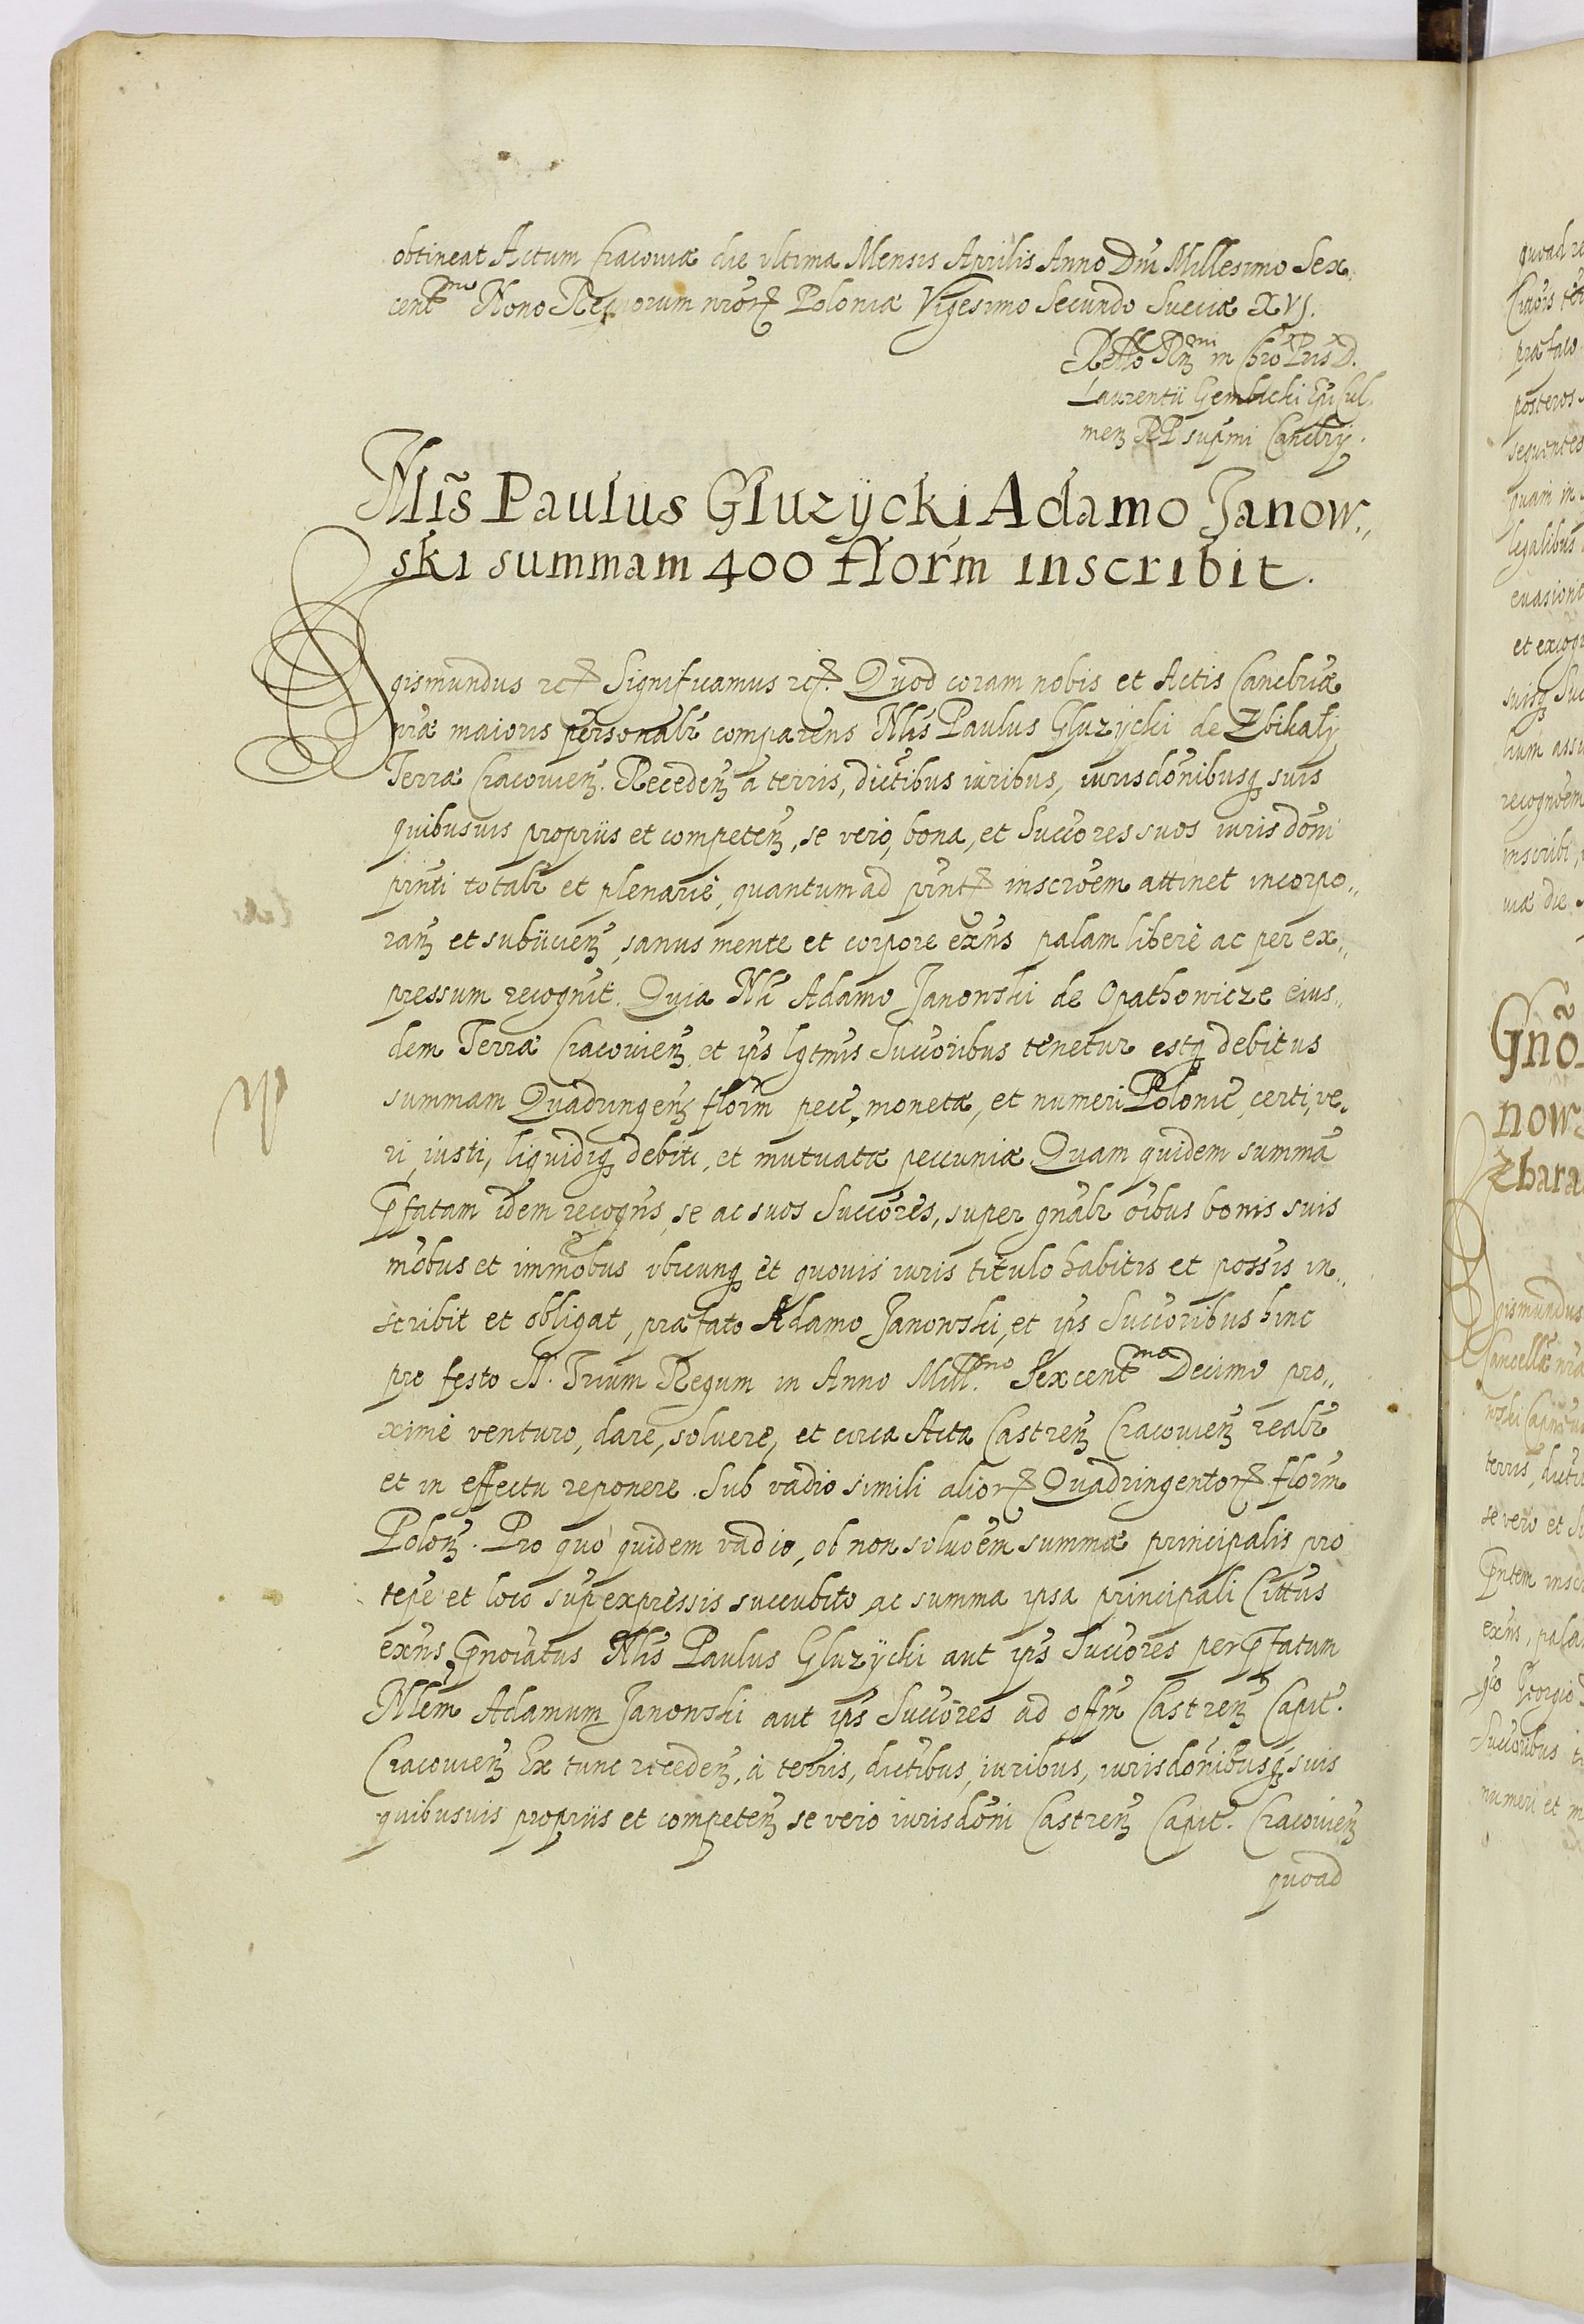 obtineat Actum Cracoviæ die ultima Mensis Aprilis Anno Dni Millesimo Sex
centmo Nono Regnorum nror Poloniæ Vigesimo Secundo Sueciæ XVI.
Rello Rmi in Chro Pris D.
Laurentii Gembicki Epi Cul
men RP supmi Cancrij.
Nlis Paulus Gluzÿcki Adamo Janow„
ski summam 400 florm inscribit.
Sigismundus etc Significamus etc. Quod coram nobis et Actis Cancriæ
nræ maioris personalr comparens Nlis Paulus Gluzÿcki de Zbikaly
Terræ Cracovien. Receden a terris, dictibus iuribus, iurisdonibusq suis
quibusvis propriis et competen, se vero, bona, et Succores suos iurisdoni
prnti totalr et plenarie, quantum ad prnt inscroem attinet incorpo„
ran et subiicien, sanus mente et corpore exns palam libere ac per ex„
pressum recognit. Quia Nli Adamo Janowski de Opathowicze eius„
dem Terræ Cracovien et ips lgtmis Succoribus tenetur estq debitus
summam Quadringen florm pecc. monetæ, et numeri Polonic, certi, ve„
ri, iusti, liquidiq debiti, et mutuatæ peccuniæ Quam quidem summa
pfatam idem recogns, se ac suos Succores, super gnalr oibus bonis suis
mobus et immobus ubicunq et quovis iuris titulo habitis et possis in„
scribit et obligat, præfato Adamo Janowski, et ips Succoribus hinc
pro festo SS. Trium Regum in Anno Millmo Sexcentmo Decimo pro„
xime venturo, dare, solvere, et circa Acta Castren Cracovien realr
et in effectu reponere. Sub vadio simili alior Quadringentor florm
Polon. Pro quo quidem vadio, ob non soluoem summæ principalis pro
tepe et loco supexpressis succubito ac summa ipsa principali Cittus
exns pnoiatus Nlis Paulus Gluzÿcki aut ips Succores per pfatum
Nlem Adamum Janowski aut ips Succores ad offm Castren Capit.
Cracovien Ex tunc receden, a terris, dictibus, iuribus, iurisdonibusq suis
quibusvis propriis et competen se vero iurisdoni Castren Capit. Cracovien
quoad